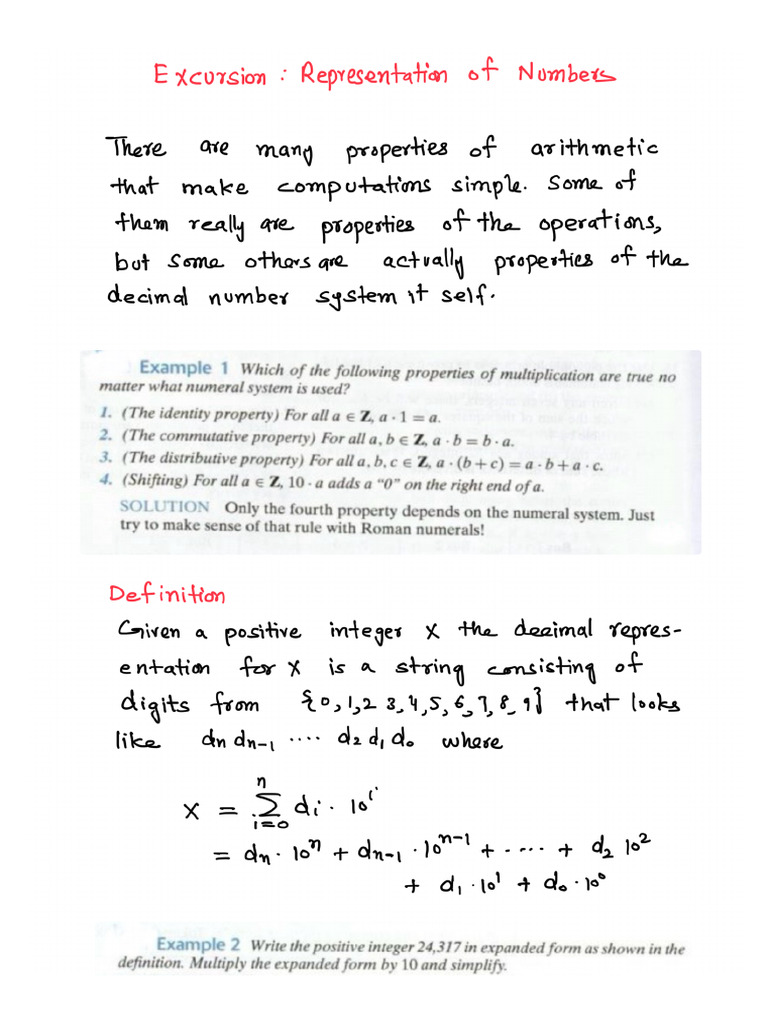 Excursion : Representation of Numbers
There are many properties of arithmetic
that make computations simple. Some of
them really are properties of the operations,
but some others are actually properties of the
decimal number system it self.
Example 1 Which of the following properties of multiplication are true no
matter what numeral system is used?
1. (The identity property) For all a ∈ Z, a · 1 = a.
2. (The commutative property) For all a, b ∈ Z, a · b = b · a.
3. (The distributive property) For all a, b, c ∈ Z, a · (b + c) = a · b + a · c.
4. (Shifting) For all a ∈ Z, 10 · a adds a "0" on the right end of a.
SOLUTION Only the fourth property depends on the numeral system. Just
try to make sense of that rule with Roman numerals!
Definition
Given a positive integer x the decimal repres-
entation for x is a string consisting of
digits from {0, 1, 2 3, 4, 5, 6, 7, 8, 9} that looks
like dn dn-1 .... d2 d1 d0 where
x = ∑_{i=0}^{n} di · 10^i
= dn · 10^n + dn-1 · 10^{n-1} + ..... + d2 10^2
+ d1 · 10^1 + d0 · 10^0
Example 2 Write the positive integer 24,317 in expanded form as shown in the
definition. Multiply the expanded form by 10 and simplify.